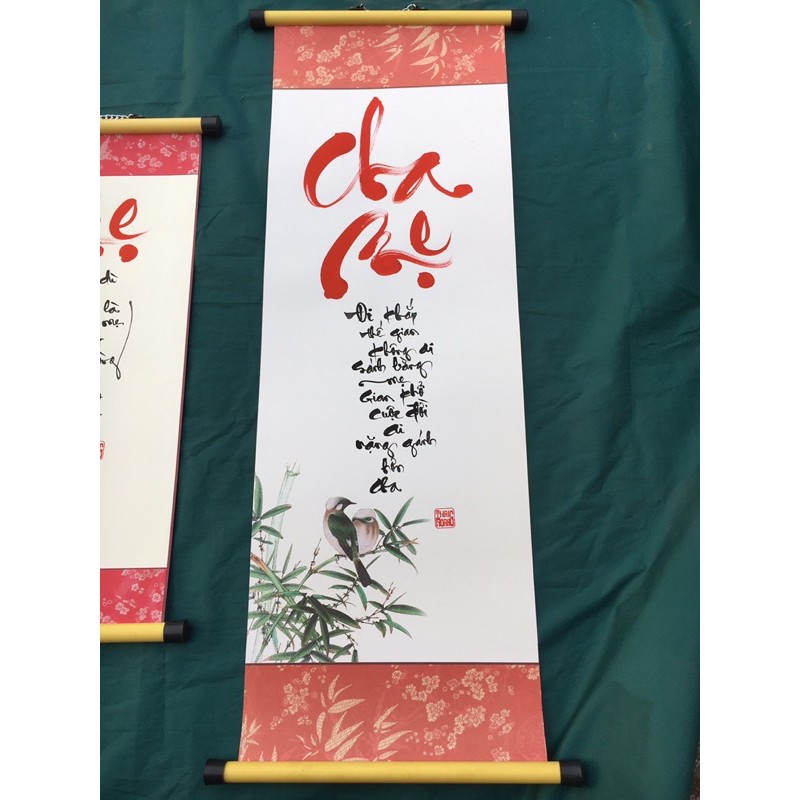 Cha
Mẹ
Đi khắp
thế gian
không ai
sánh bằng
mẹ
Gian khổ
cuộc đời
ai
nặng gánh
hơn
cha